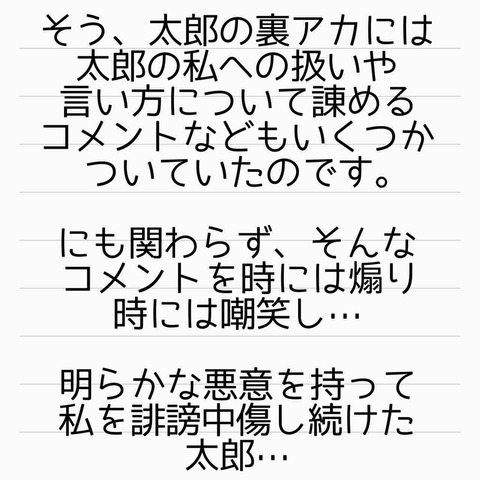 そう、太郎の裏アカには
太郎の私への扱いや
言い方について諌める
コメントなどもいくつか
ついていたのです。
にも関わらず、そんな
コメントを時には煽り
時には嘲笑し…
明らかな悪意を持って
私を誹謗中傷し続けた
太郎…